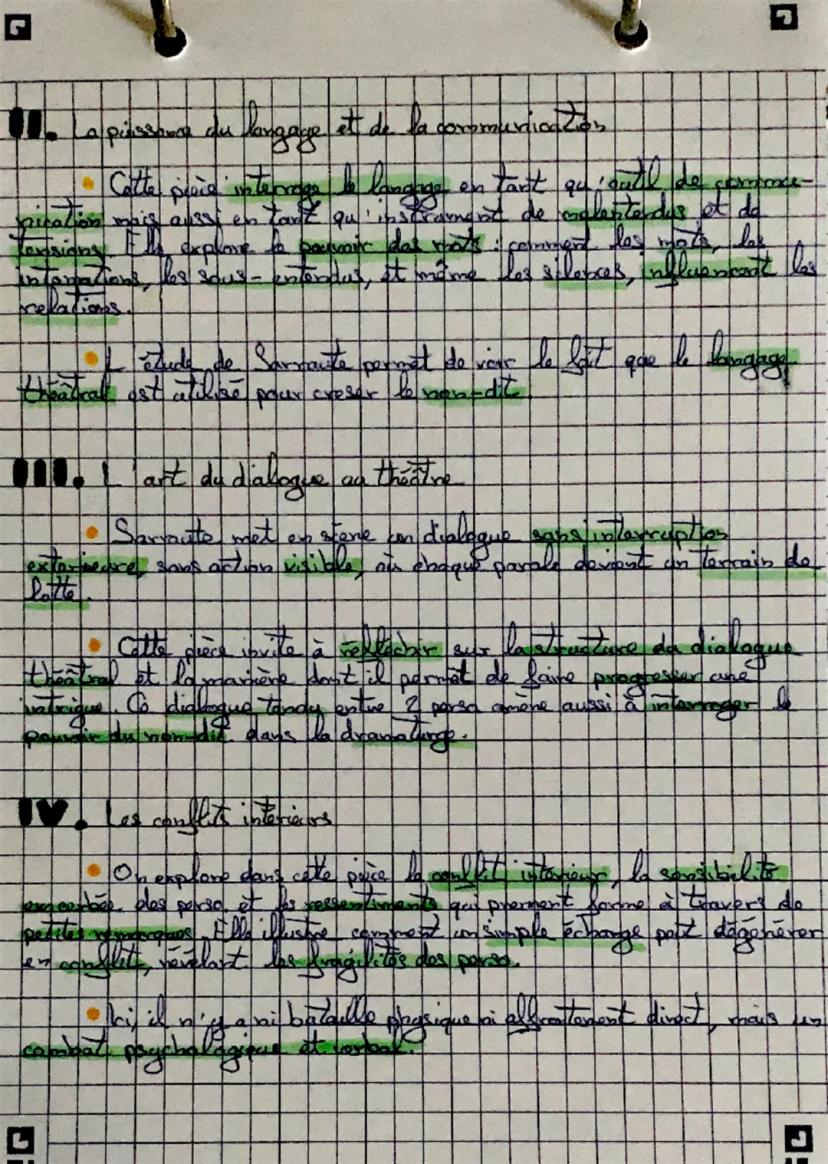 II. La puissance du langage et de la communication
• Cette pièce interroge le langage en tant qu'outil de commu-
nication mais aussi en tant qu'instrument de malentendus et de
tensions. Elle explore le pouvoir des mots : comment les mots, les
intonations, les sous-entendus, et même les silences, influencent les
relations.
• L'étude de Sarraute permet de voir le fait que le langage
théâtral est utilisé pour creser le non-dit
III. L'art du dialogue au théâtre
• Sarraute met en scène un dialogue sans interruption
exterieure, sans action visible, où chaque parole devient un terrain de
lutte.
• Cette pièce invite à réfléchir sur la structure du dialogue
théâtral et la manière dont il permet de faire progresser une
intrigue. Ce dialogue tendu entre 2 perso amène aussi à interroger le
pouvoir du non-dit dans la dramaturge.
IV. Les conflits intérieurs
• On explore dans cette pièce le conflit intérieur, la sensibilité
exacerbée des perso et les ressentiments qui prennent forme à travers de
petites remarques. Elle illustre comment un simple échange peut dégénérer
en conflit, révélant les fragilités des perso.
• Ici, il n'y a ni bataille physique ni affrontement direct, mais un
combat psychologique et verbal.